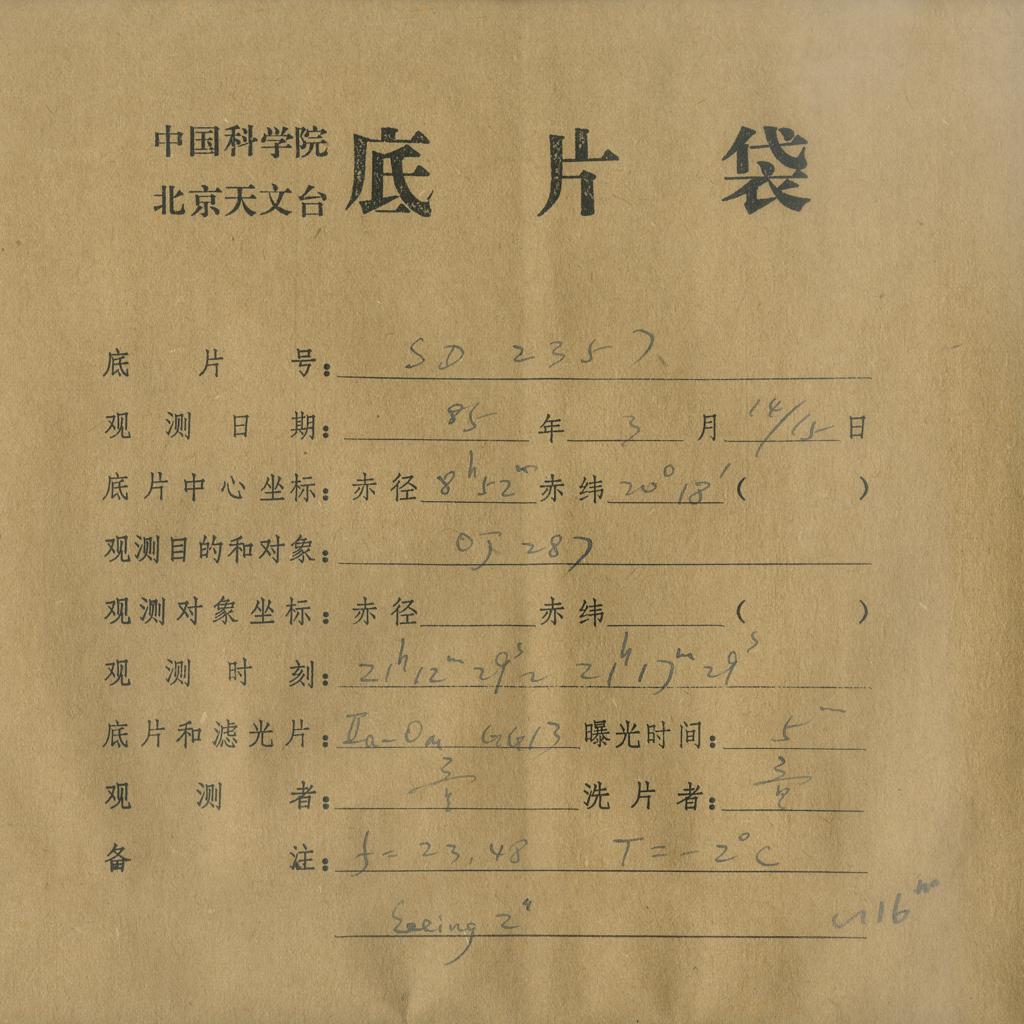 中国科学院
北京天文台
底片袋
底片号：SD 2357
观测日期：85年3月14/15日
底片中心坐标：赤径 8h52m 赤纬 20°18′（ ）
观测目的和对象：OJ 287
观测对象坐标：赤径 赤纬 （ ）
观测时刻：21h12m29s~21h17m29s
底片和滤光片：IIa-O GG13 曝光时间：5m
观测者： 洗片者：
备注：f=23.48 T=-2°C
Seeing 2″ ~16m